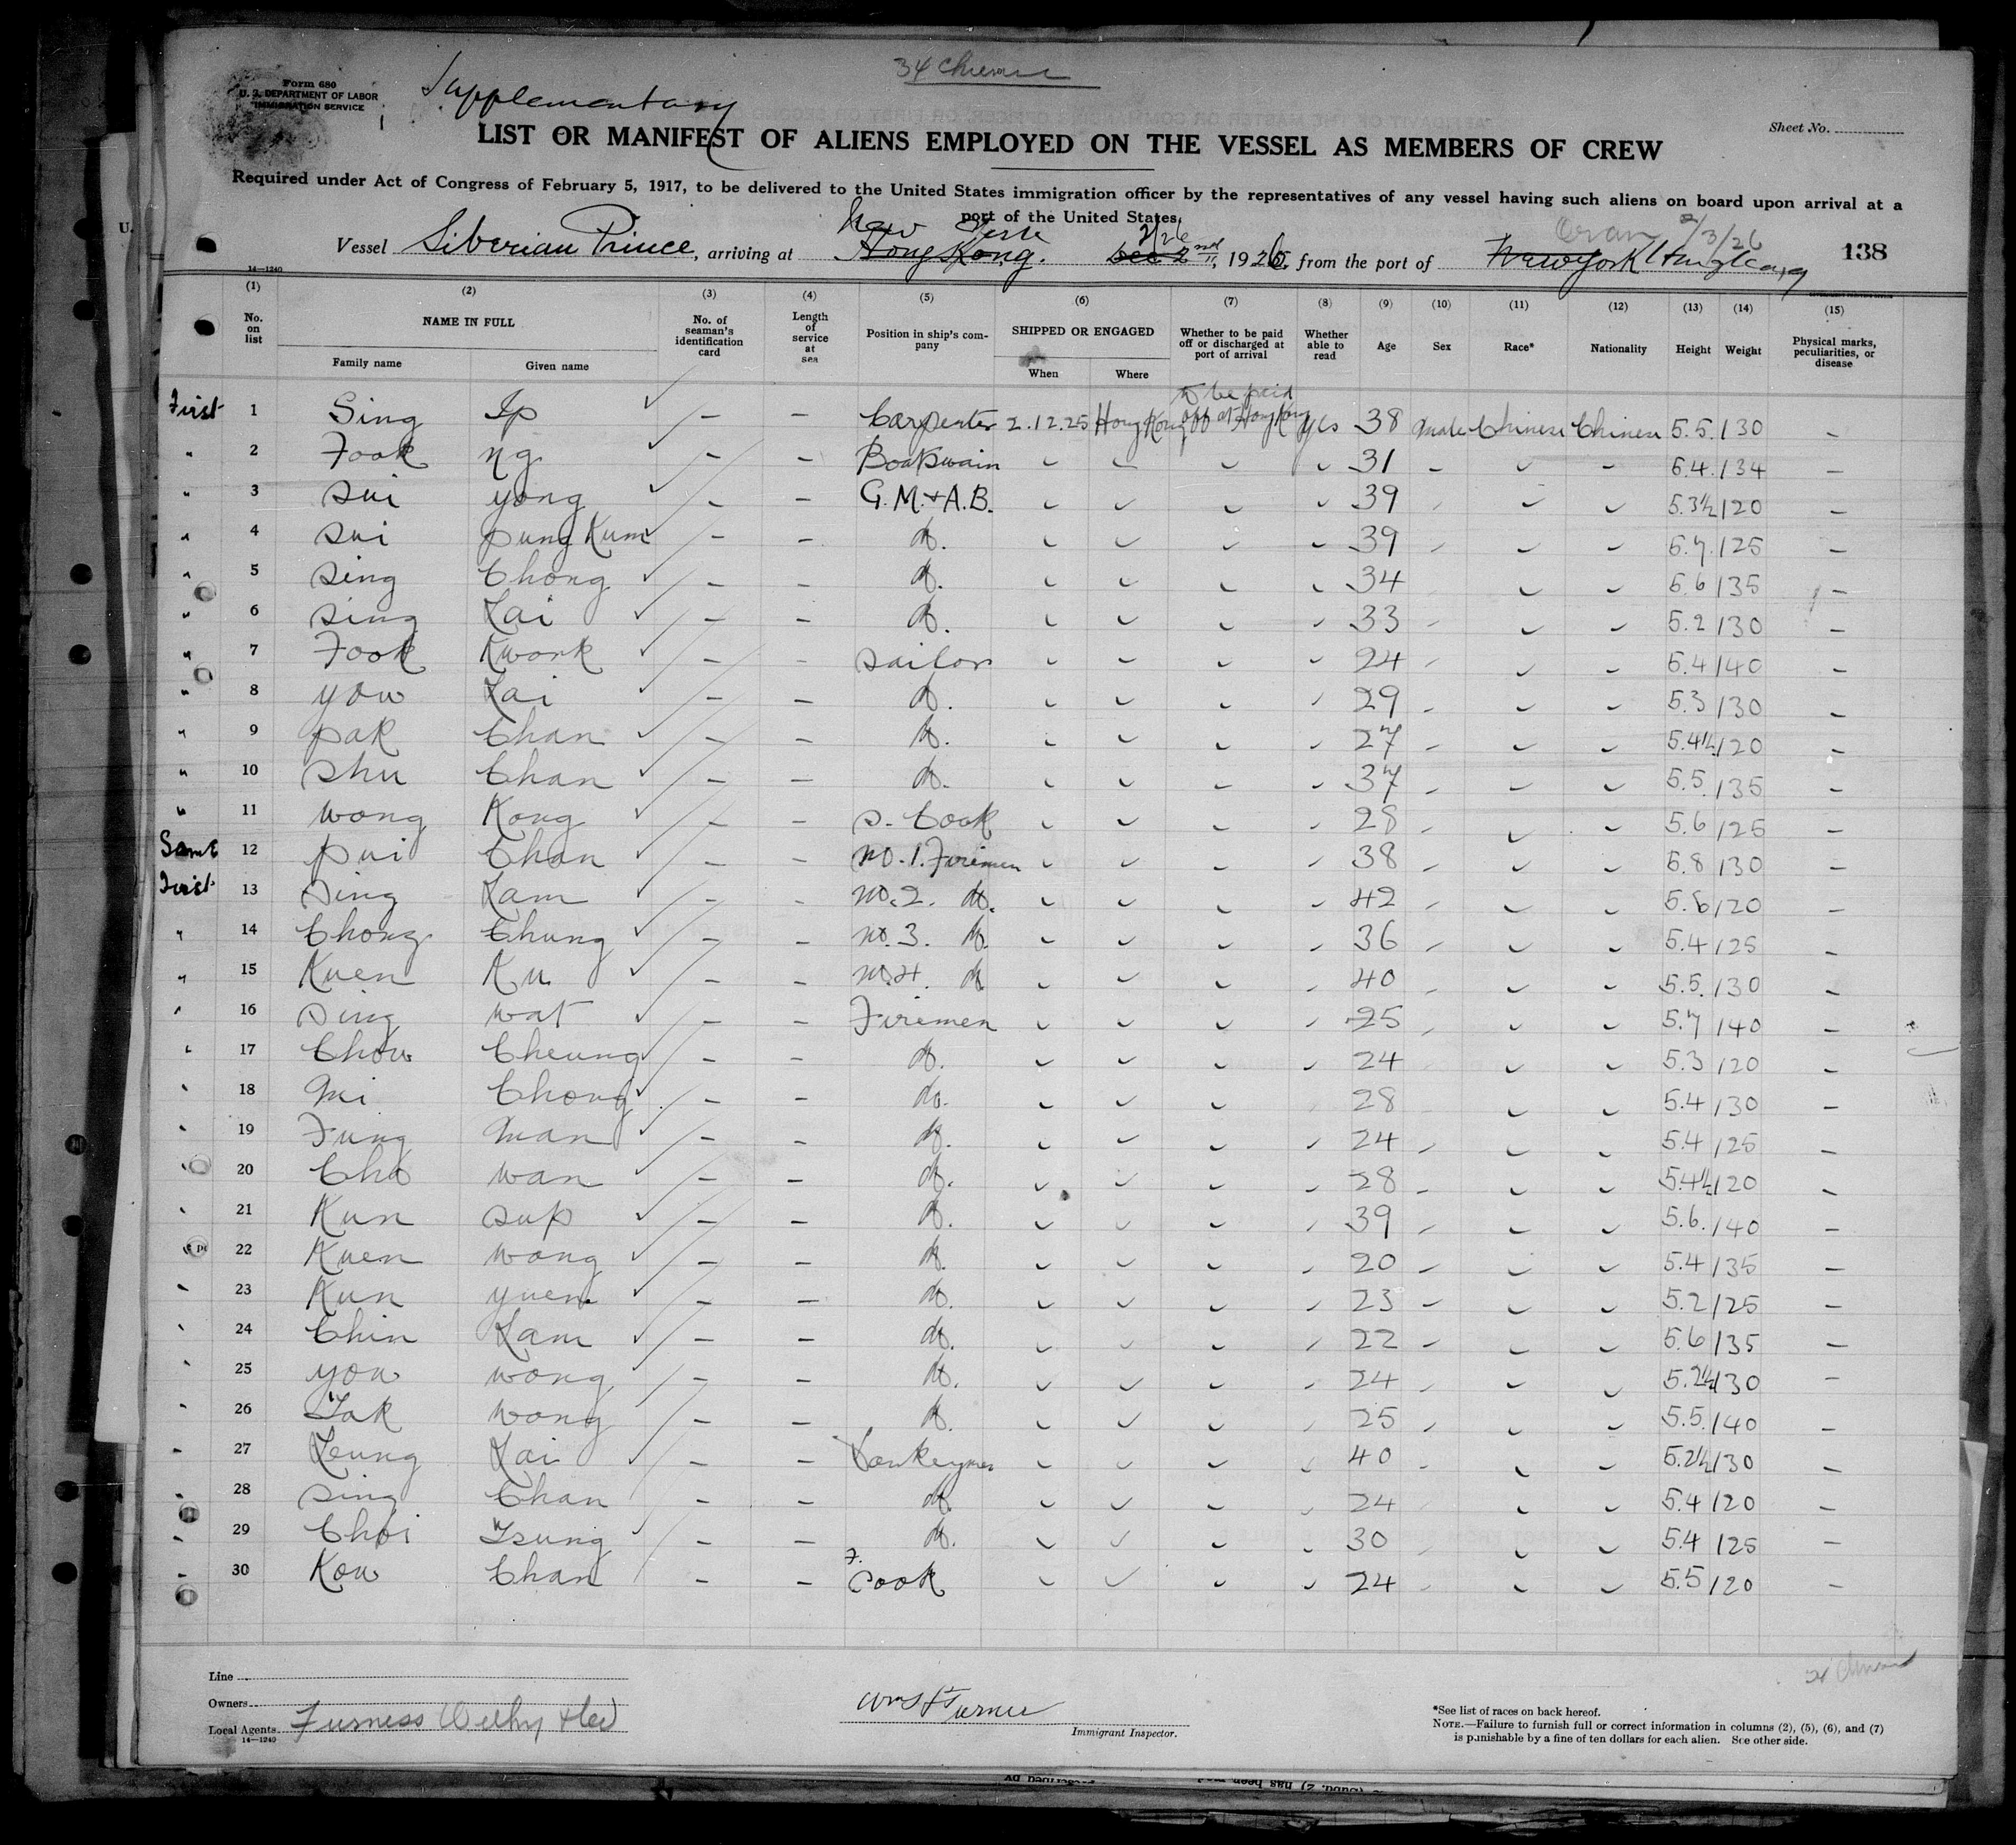 34 Chinese
Form 680
U. S. DEPARTMENT OF LABOR
IMMIGRATION SERVICE
Supplementary
Sheet No.
LIST OR MANIFEST OF ALIENS EMPLOYED ON THE VESSEL AS MEMBERS OF CREW
Required under Act of Congress of February 5, 1917, to be delivered to the United States immigration officer by the representatives of any vessel having such aliens on board upon arrival at a
port of the United States
New 2/26 Oran 2/3/26
Vessel Siberian Prince, arriving at Hong Kong. Dec 2nd, 1926, from the port of New York Hong Kong 138
14—1240
(1) (2) (3) (4) (5) (6) (7) (8) (9) (10) (11) (12) (13) (14) (15)
No. on list NAME IN FULL No. of seaman's identification card Length of service at sea Position in ship's company SHIPPED OR ENGAGED Whether to be paid off or discharged at port of arrival Whether able to read Age Sex Race* Nationality Height Weight Physical marks, peculiarities, or disease
Family name Given name When Where
to be paid
First 1 Sing Ip — — Carpenter 2.12.25 Hong Kong off at Hong Kong yes 38 male Chinese Chinese 5.5. 130 —
" 2 Fook Ng — — Boatswain 31 5.4. 134 —
" 3 Sui Yong — — G.M.+A.B. 39 5.3½ 120 —
" 4 Sui Pung Kum — — do. 39 5.7. 125 —
" 5 Sing Chong — — do. 34 5.6 135 —
" 6 Sing Lai — — do. 33 5.2 130 —
" 7 Fook Kwork — — Sailor 24 5.4 140 —
" 8 You Lai — — do. 29 5.3 130 —
" 9 Pak Chan — — do. 27 5.4½ 120 —
" 10 Shu Chan — — do. 37 5.5. 135 —
" 11 Wong Kong — — S. Cook 28 5.6 125 —
Same 12 Pui Chan — — No. 1. Firemen 38 5.8 130 —
First 13 Sing Lam — — No. 2. do. 42 5.6 120 —
" 14 Chong Chung — — No. 3. do. 36 5.4 125 —
" 15 Kuen Ku — — No. 4. do. 40 5.5. 130 —
" 16 Sing Wat — — Firemen 25 5.7 140 —
" 17 Chow Cheung — — do. 24 5.3 120 —
" 18 Mi Chong — — do. 28 5.4 130 —
" 19 Fung Man — — do. 24 5.4 125 —
" 20 Cho Wan — — do. 28 5.4½ 120 —
" 21 Kun Sup — — do. 39 5.6. 140 —
" 22 Kuen Wong — — do. 20 5.4 135 —
" 23 Kun Yuen — — do. 23 5.2 125 —
" 24 Chin Lam — — do. 22 5.6 135 —
" 25 You Wong — — do. 24 5.2½ 130 —
" 26 Tak Wong — — do. 25 5.5. 140 —
" 27 Leung Lai — — Donkeymen 40 5.2½ 130 —
" 28 Sing Chan — — do. 24 5.4 120 —
" 29 Choi Tsung — — do. 30 5.4 125 —
" 30 Kow Chan — — F. Cook 24 5.5 120 —
Line
Owners
Local Agents Furness Withy
14—1240
Wm Turner
Immigrant Inspector.
*See list of races on back hereof.
NOTE.—Failure to furnish full or correct information in columns (2), (5), (6), and (7)
is punishable by a fine of ten dollars for each alien. See other side.